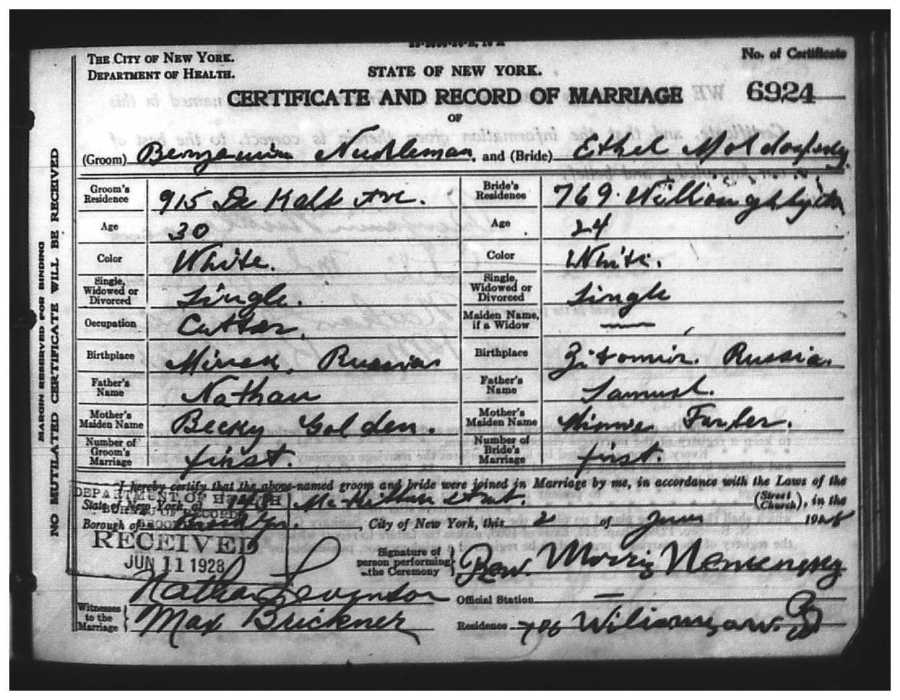 THE CITY OF NEW YORK.
DEPARTMENT OF HEALTH.
STATE OF NEW YORK.
No. of Certificate
CERTIFICATE AND RECORD OF MARRIAGE 6924
OF
(Groom) Benjamin Nudleman, and (Bride) Ethel
Groom's Residence 915 De Kalb Ave. Bride's Residence 769 Willoughby
Age 30 Age 24
Color White. Color White.
Single, Widowed or Divorced Single. Single, Widowed or Divorced Single
Occupation Cutter, Maiden Name, if a Widow —
Birthplace Minsk, Russia Birthplace Zitomir. Russia.
Father's Name Nathan Father's Name Samuel.
Mother's Maiden Name Becky Golden. Mother's Maiden Name Farber.
Number of Groom's Marriage first. Number of Bride's Marriage first.
I hereby certify that the above-named groom and bride were joined in Marriage by me, in accordance with the Laws of the
State of New York, at Street (Street Church), in the
Borough of , City of New York, this 2 of June 1928
DEPARTMENT OF HEALTH
BUREAU OF RECORDS
RECEIVED
JUN 11 1928
Signature of person performing the Ceremony Rev. Morris
Witnesses to the Marriage Nathan Levenson
Max Brickner
Official Station —
Residence
MARGIN RESERVED FOR BINDING
NO MUTILATED CERTIFICATE WILL BE RECEIVED